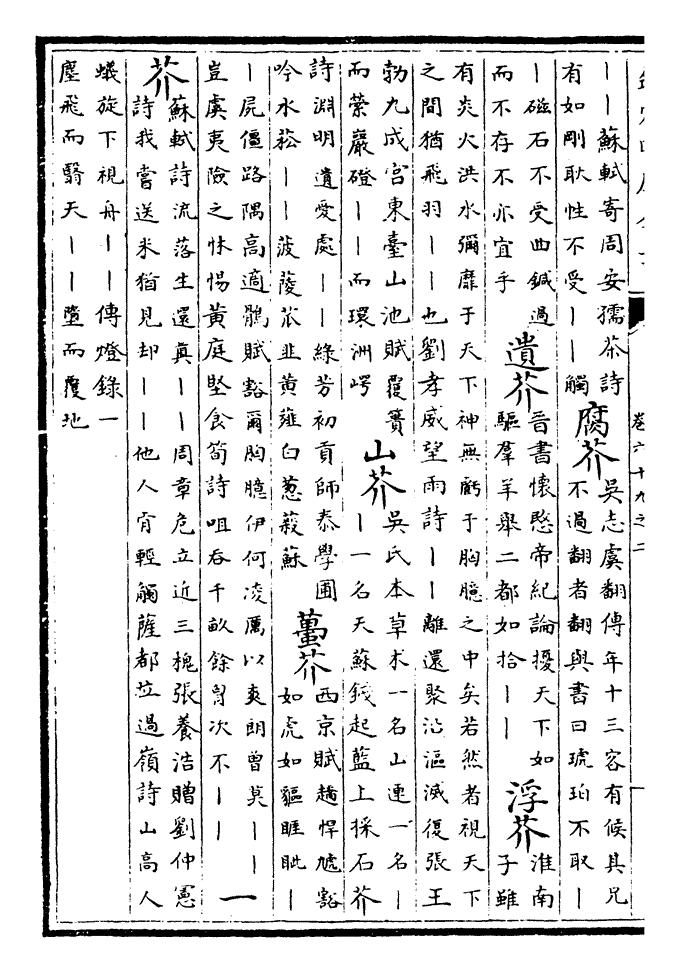 欽定四庫全書
卷六十九之二
丨丨蘇軾寄周安孺茶詩
有如剛耿性不受丨丨觸
腐芥
吳志虞翻傳年十三客有候其兄
不過翻者翻與書曰琥珀不取丨
丨磁石不受曲鍼過
而不存不亦宜乎
遺芥
晉書懷愍帝紀論擾天下如
驅羣羊舉二都如拾丨丨
浮芥
淮南
子雖
有炎火洪水彌靡于天下神無虧于胸臆之中矣若然者視天下
之間猶飛羽丨丨也劉孝威望雨詩丨丨離還聚沿漚滅復張王
勃九成宮東臺山池賦覆簣
而縈巖磴丨丨而環洲嶼
山芥
吳氏本草朮一名山連一名丨
丨一名天蘇錢起藍上採石芥
詩淵明遺愛處丨丨綠芳初貢師泰學圃
吟水菘丨丨菠薐茁韭黃薤白蔥蔱蘇
蠆芥
西京賦趫悍虓豁
如虎如貙睚眦丨
丨屍僵路隅高適鶻賦豁爾胸臆伊何凌厲以爽朗曾莫丨丨
豈虞夷險之怵惕黃庭堅食筍詩咀吞千畝餘胷次不丨丨
一芥
蘇軾詩流落生還真丨丨周章危立近三槐張養浩贈劉仲憲
詩我嘗送米猶見却丨丨他人肯輕觸薩都拉過嶺詩山高人
蟻旋下視舟丨丨傳燈錄一
塵飛而翳天丨丨墮而覆地